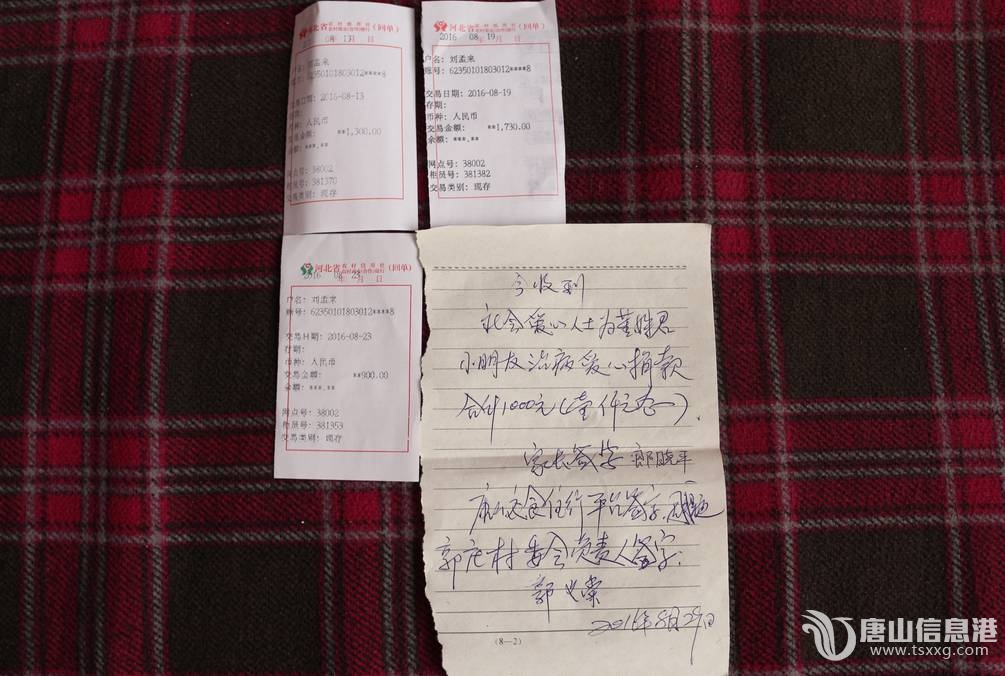 河北省农村信用社
农村商业(合作)银行(回单)
08月13日
户名：刘孟来
62350101803012****8
2016-08-13
币种：人民币
交易金额： **1,300.00
余额：***.**
网点号：38002
柜员号：381370
交易类别：现存
河北省农村信用社
农村商业(合作)银行(回单)
2016年08月19日
户名：刘孟来
账号：62350101803012****8
交易日期：2016-08-19
存期：
币种：人民币
交易金额： **1,730.00
余额：***.**
网点号：38002
柜员号：381382
交易类别：现存
河北省农村信用社
农村商业(合作)银行(回单)
2016年08月23日
户名：刘孟来
账号：62350101803012****8
交易日期：2016-08-23
存期：
币种：人民币
交易金额： **900.00
余额：***.**
网点号：38002
柜员号：381353
交易类别：现存
今收到
社会爱心人士为董
小朋友治病爱心捐款
合计1000元(壹仟元
家长签字
食住行平台签字
郭庄村委会负责人签字.
郭
2016年8月29日
(8—2)
唐山信息港
www.tsxxg.com